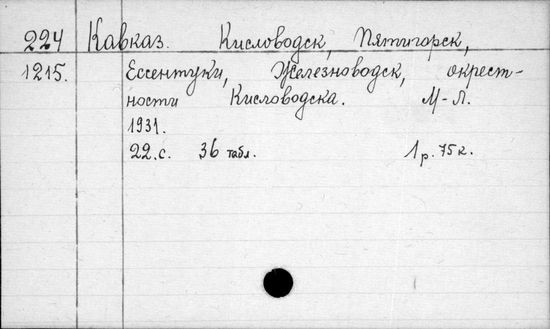 224 Кавказ. Кисловодск, Пятигорск,
1215. Ессентуки, Железноводск, окрест-
ности Кисловодска. М-Л.
1931.
22.с. 36 табл. 1р. 75к.